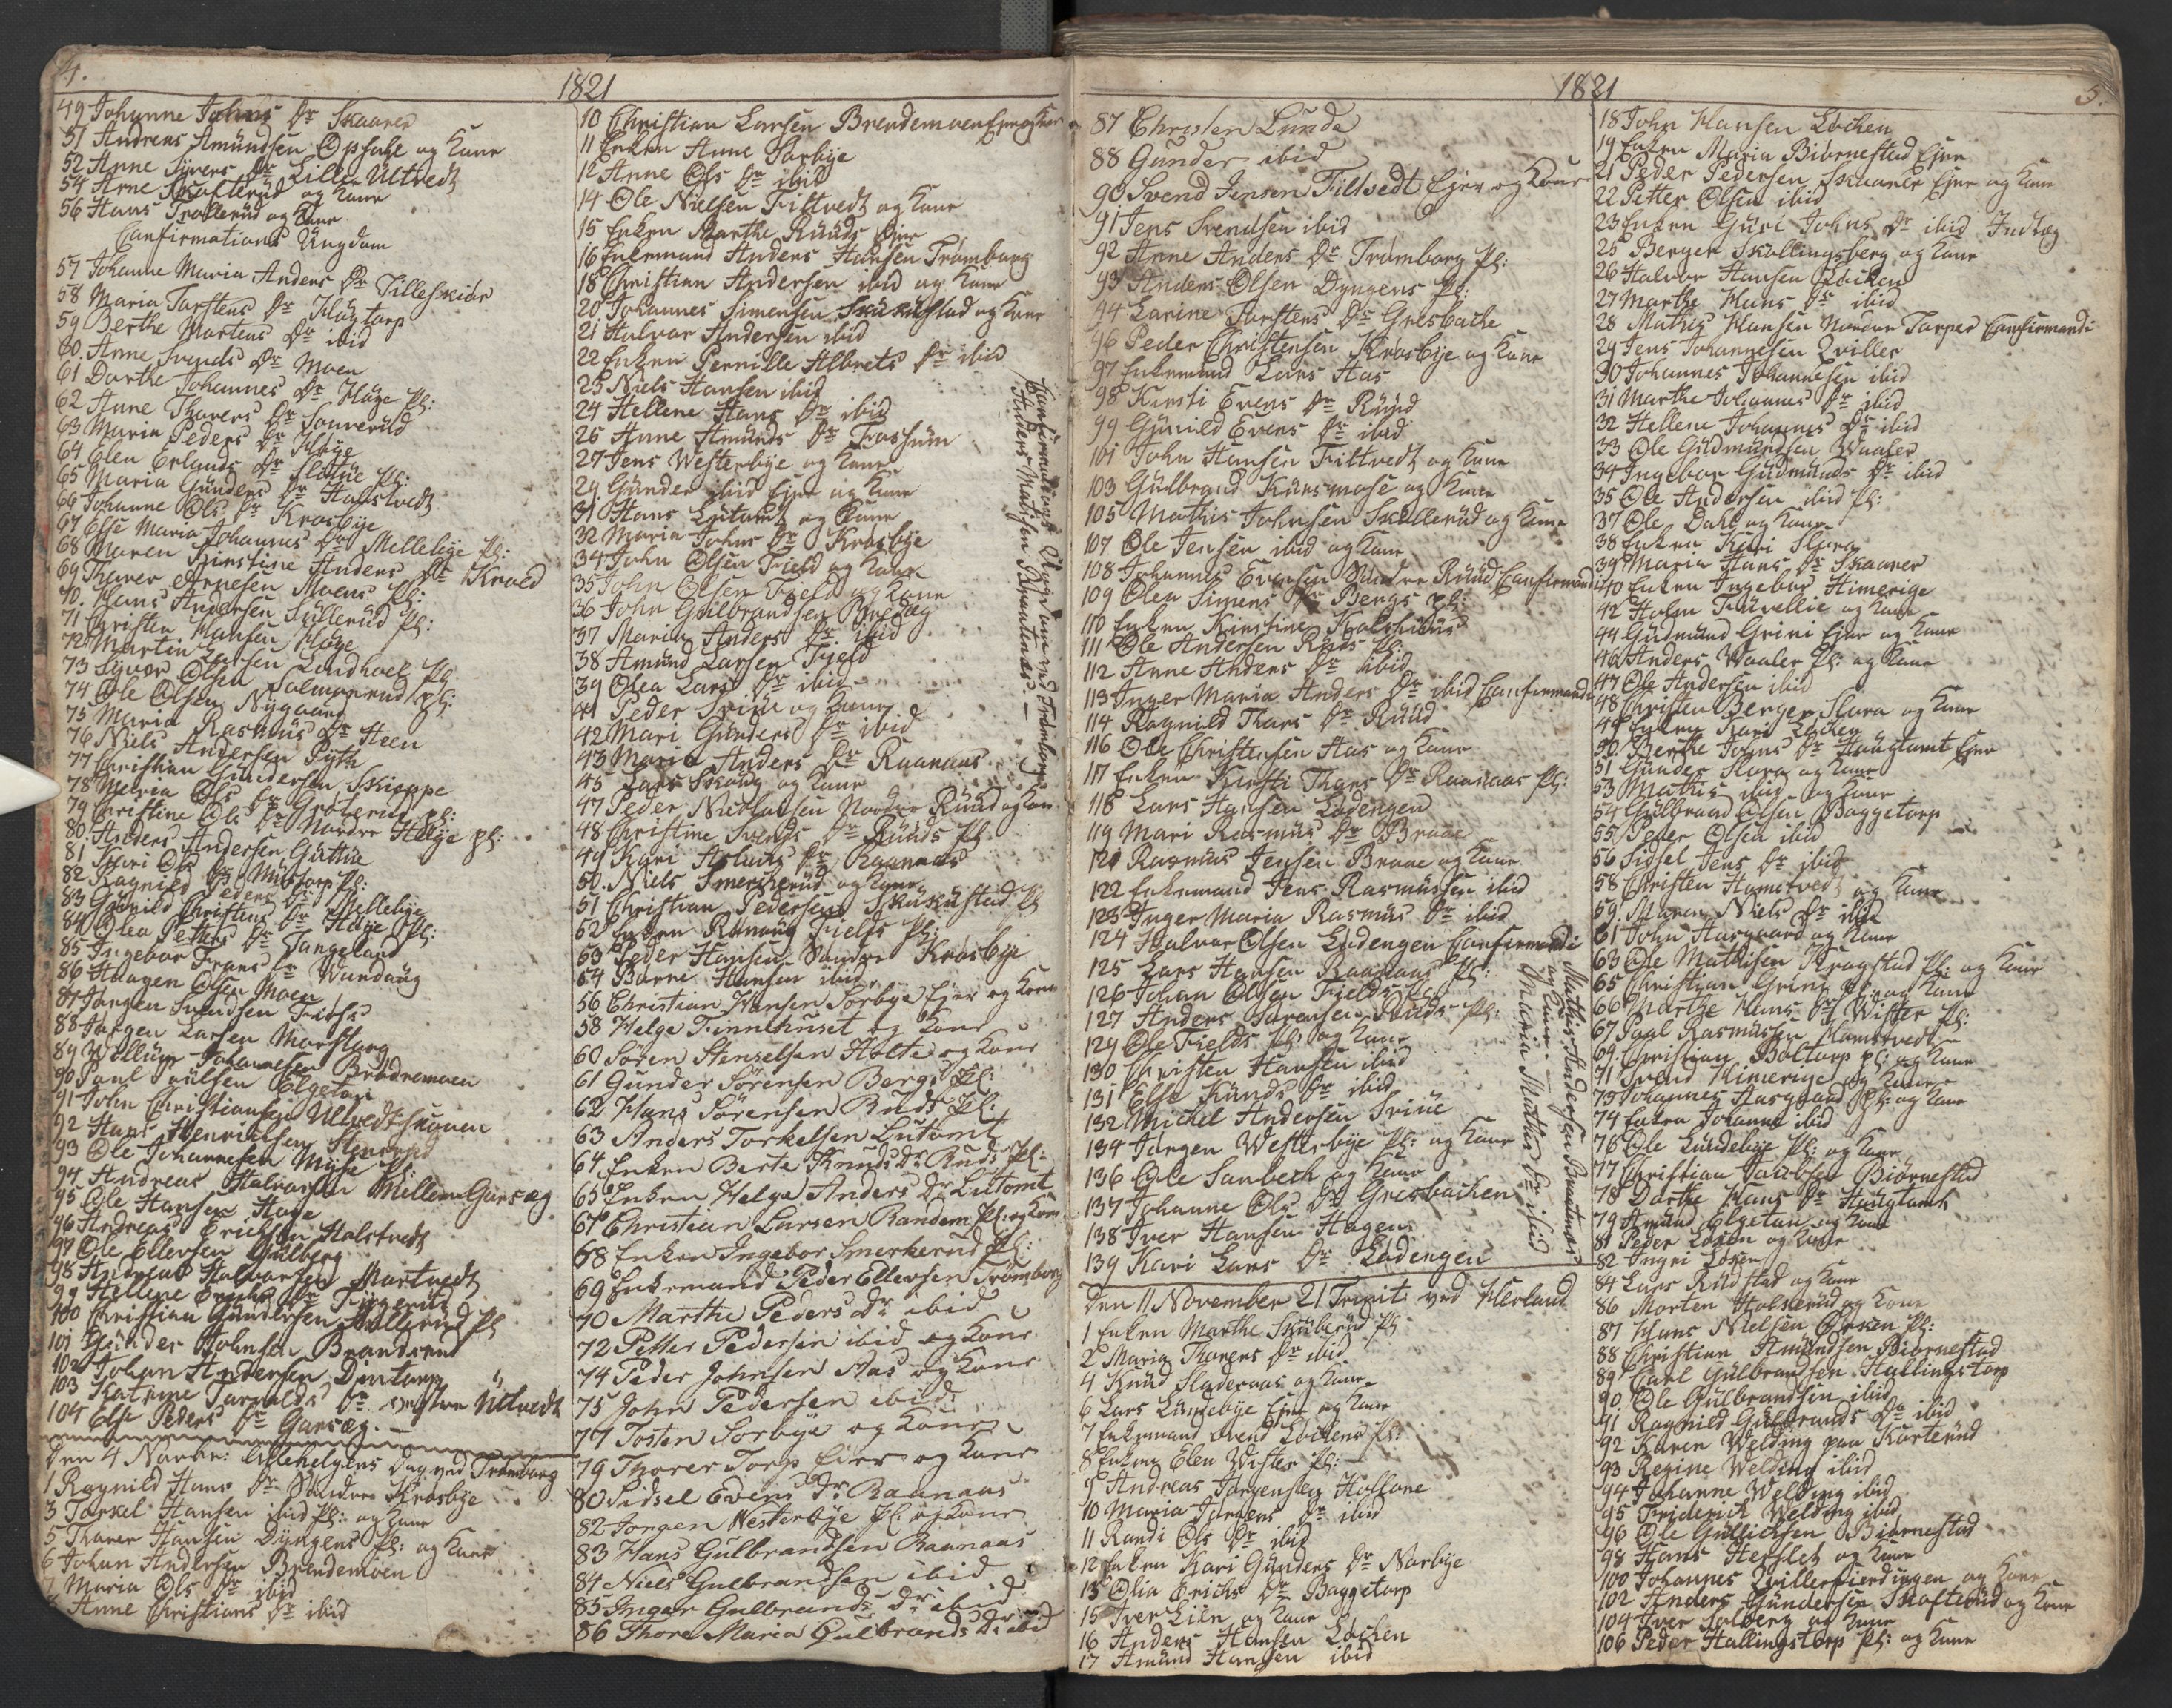 4.
1821
49 Johanne Johns Dr Skaarer
51 Andreas Amündsen Opsahl og Kone
52 Anne Syvers Dr Lille Ultvedt
54 Arne Skofterüd og Kone
56 Hans Trollerüd og Kone
Confirmations Ungdom
57 Johanne Maria Anders Dr Tilleskiör
58 Maria Torstens Dr Høytorp
59 Berthe Martens Dr ibid
60. Anne Svends Dr Moen
61 Dorthe Johannes Dr Høge Pl:
62 Anne Thorers Dr
63 Maria Peders Dr Høye
64 Olea Erlands Dr Slatüe Pl:
65 Maria Günders Dr Hamstvedt
66 Johanne Ols Dr Krosbÿe
67 Else Maria Johannes Dr Mellebÿe Pl:
68 Maren Kirstine Anders Dr
69 Thorer Arnesen Moens Pl:
70. Hans Andersen Süllerüd Pl:
71 Christen Hansen Høye
72 Martin Larsen Lindhoel Pl:
73 Syver Olsen Salmonrud Pl:
74 Ole Olsen Nÿgaard
75 Maria Rasmus Dr Steen
76 Niels Andersen
77 Christian Gündersen Skieppe
78 Maren Ols Dr Groterüd Pl:
79 Christine Ols Dr Nordre Høÿe pl:
80. Anders Andersen
81 Kari Ols Dr Mÿstorp Pl:
82 Ragnild Peders Dr Mellebÿe
83 Günild Christens Dr Høie Pl:
84 Olea Petters Dr Tangeland
85 Ingebor Frans Dr
86 Haagen Olsen Moen
87 Jørgen Svendsen Fos
88 Jørgen Larsen
89 Willum Johannesen Brødremoen
90 Poul Poulsen Elgetun
91 John Christiansen Ultvedtskoven
92 Hans Henrichsen Stenerud
93 Ole Johannesen Mÿse Pl:
94 Andreas Halvorsen Mellem Garsæg
95 Ole Hansen Hage
96 Andreas Erichsen Halstvedt
97 Ole Ellersen Gulberg
98 Andreas Halvorsen Martvedt
99 Hellene Erichs Dr
100 Christian Gundersen Süllerud Pl
101 Günder Johnsen Brandsrud
102 Johan Andersen Dintorp
103 Katrine Torvalds Dr vestre Ültvedt
104 Else Peders Dr Garsæg.
Den 4 Novbr: Allehelgens Dag ved Trømborg
1 Ragnild Hans Dr Søndre Krosbÿe
3 Torkel Hansen ibid Pl: og Kone
5 Thorer Hansen Dÿngens Pl: og Kone
6 Johan Andersen Brendemoen
7 Maria Ols Dr ibid
8 Anne Christians Dr ibid
10 Christian Larsen Brendemoen Ejer og Kone
11 Enken Anne Sorbÿe
12 Anne Ols Dr ibid
14 Ole Nielsen Tiltvedt og Kone
15 Enken Marthe Ruuds Ejer
16 Enkemand Anders Hansen Trømborg
18 Christian Andersen ibid og Kone
20 Johannes Simensen Skükustad og Kone
21 Halvor Andersen ibid
22 Enken Pernille Albrets Dr ibid
23 Niels Hansen ibid
24 Hellene Hans Dr ibid
25 Anne Amunds Dr Fossum
27 Jens Westerbÿe og Kone
29 Günder ibid Ejer og Kone
31 Hans Lutomt og Kone
32 Maria Johns Dr Krosbÿe
34 John Olsen Field og Kone
35 John Olsen Field og Kone
36 John Gulbrandsen Bredæg
37 Maria Anders Dr ibid
38 Amund Larsen Fjeld
39 Olea Lars Dr ibid
41 Peder Sviüe og Kone
42 Mari Günders Dr ibid
43 Maria Anders Dr Raanaas
45 Lars Skoug og Kone
47 Peder Nicolaisen Nordre Rüüd og Kone
48 Christine Svends Dr Rüüds Pl
49 Kari Aslaks Dr Raanaas
50. Niels Smerkerüd og Kone
51 Christian Pedersen Skükustad Pl
52 Enken Fields Pl:
53 Peder Hansen Søndre Krosbÿe
54 Børre Hansen ibid
56 Christian Hansen Sorbye Ejer og Kone
58 Helge Finnehuset og Kone
60 Søren Stenselsen Holte og Kone
61 Gunder Sørensen Bergs Pl:
62 Hans Sørensen Ruds Pl:
63 Anders Torkelsen Lutomt
64 Enken Berte Knuds Dr Ruds Pl:
65 Enken Helge Anders Dr Lutomt
67 Christian Larsen Randem Pl: og Kone
68 Enken Ingebor Smerkerud Pl:
69 Enkemand Peder Ellevsen Trømborg
70 Marthe Peders Dr ibid
72 Petter Pedersen ibid og Kone
74 Peder Johnsen Aas og Kone
75 John Pedersen ibid
77 Tosten Sorbye og Kone
79 Thorer Torp Eier og Kone
80 Sidsel Evens Dr Raanaas
82 Jorgen Westerbye Pl: og Kone
83 Hans Gulbrandsen Raanaas
84 Niels Gulbrandsen ibid
85 Inger Gulbrands Dr ibid
86 Thore Maria Gulbrands Dr ibid
Confirmations Ungdom ved Trømborg
Anders Matisen Braatnæs.
1821
5.
87 Christen Lunde
88 Gunder ibid
90 Svend Jensen Tiltvedt Ejer og Kone
91 Jens Svendsen ibid
92 Anne Anders Dr Trømborg Pl:
93 Anders Olsen Dyngens Pl:
94 Larine Torstens Dr Gresbache
96 Peder Christensen Krosbÿe og Kone
97 Enkemand Lars Aas
98 Kirsti Evens Dr Rüüd
99 Günild Evens Dr ibid
101 John Hansen Tiltvedt og Kone
103 Gulbrand Kürsmose og Kone
105 Mathis Johnsen Sküllerüd og Kone
107 Ole Jensen ibid og Kone
108 Johannes Evensen Søndre Rüüd Confirmandi
109 Olea Simens Dr Bergs pl:
110 Enken Kirstine
111 Ole Andersen Rüds Pl:
112 Anne Anders Dr ibid
113 Inger Maria Anders Dr ibid Confirmandi
114 Ragnild Thors Dr Rüüd
116 Ole Christensen Aas og Kone
117 Enken Kirsti Thors Dr Raanaas Pl:
118 Lars Hansen Lodengen
119 Mari Rasmus Dr Braae
121 Rasmus Jensen Braae og Kone
122 Enkemand Jens Rasmüssen ibid
123 Inger Maria Rasmus Dr ibid
124 Halvor Olsen Lodengen Confirmandi
125 Lars Hansen Raanaas Pl:
126 Johan Olsen Fields Pl:
127 Anders Sørensen Ruds Pl:
129 Ole Fields Pl: og Kone
130 Christen Hansen ibid
131 Else Knüds Dr ibid
132 Michel Andersen Sviüe
134 Jørgen Westerbÿe Pl: og Kone
136 Ole Sanbech og Kone
137 Johanne Ols Dr Gresbachen
138 Iver Hansen Hagen
139 Kari Lars Dr Lodengen
Mathis Andersen Braatnæs
og Kone - Maria Mathis Dr ibid
Den 11 November 21 Trinit: ved Herland
1 Enken Marthe Sküberüd Pl:
2 Maria Thorers Dr ibid
4 Knüd Sladeraas og Kone
6 Lars Lündebÿe Ejer og Kone
7 Enkemand Svend Lochens Pl:
8 Enken Elen Wister Pl:
9 Andreas Jørgensen Hollone
10 Maria Jørgens Dr ibid
11 Randi Ols Dr ibid
12 Enken Kari Günders Dr Norbÿe
13 Olia Erichs Dr Baggetorp
15 Iver Lien og Kone
16 Anders Hansen Lochen
17 Amund Hansen ibid
18 John Hansen Lochen
19 Enken Maria Biørnestad Ejer
21 Peder Pedersen Skaarer Ejer og Kone
22 Petter Olsen ibid
23 Enken Guri Johns Dr ibid Indlæg
25 Berger Skollingsberg og Kone
26 Halvor Hansen Lochen
27 Marthe Hans Dr ibid
28 Mathis Hansen Nordre Torper Confirmandi
29 Jens Johannesen Qviller
30 Johannes Johannesen ibid
31 Marthe Johannes Dr ibid
32 Hellene Johannes Dr ibid
33 Ole Güdmündsen Waaler
34 Ingebor Güdmünds Dr ibid
35 Ole Andersen ibid Pl:
37 Ole Dahl og Kone
38 Enken Kari Slora
39 Maria Hans Dr Skaarer
40 Enken Ingebor Himerige
42 Holm og Kone
44 Güdmund Grini Ejer og Kone
46 Anders Waaler Pl: og Kone
47 Ole Andersen ibid
48 Christen Berger Slora og Kone
49 Enken Kari Lochen
50. Berthe Johns Dr Haugtomt Ejer
51 Günder Slora og Kone
53 Mathis ibid og Kone
54 Gulbrand Olsen Baggetorp
55 Peder Olsen ibid
56 Sidsel Jens Dr ibid
58 Christen Hamstvedt og Kone
59. Maren Niels Dr ibid
61 John Aasgaard og Kone
63 Ole Mathisen Krogstad Pl: og Kone
65 Christian Grini Pl: og Kone
66 Marthe Hans Dr Wister Pl:
67 Poul Rasmüssen Hamstvedt
69. Christian Boltorp pl: og Kone
71 Svend Himerige og Kone
73 Johannes Aasgaard Pl: og Kone
74 Enken Johanne ibid
76 Ole Lündebÿe Pl: og Kone
77 Christian Jacobsen Biørnestad
78 Dorthe Hans Dr Haugtomt
79 Amünd Elgetun og Kone
81 Peder Løsen og Kone
82 Ingri Løsen
84 Lars Rüdstad og Kone
86 Morten Holslerüd og Kone
87 Hans Nielsen Pl:
88 Christian Amündsen Biørnestad
89 Carl Gülbrandsen Hallingstorp
90. Ole Gülbrandsen ibid
91 Ragnild Gülbrands Dr ibid
92 Karen Welding paa Korterüd
93 Regine Welding ibid
94 Johanne Welding ibid
95 Friderich Welding ibid
96 Ole Güllichsen Biørnestad
98 Hans Herslet og Kone
100 Johannes Qvillerfierdingen og Kone
102 Anders Gündersen Skofterüd og Kone
104 Iver Solberg og Kone
106 Peder Hallingstorp Pl: og Kone